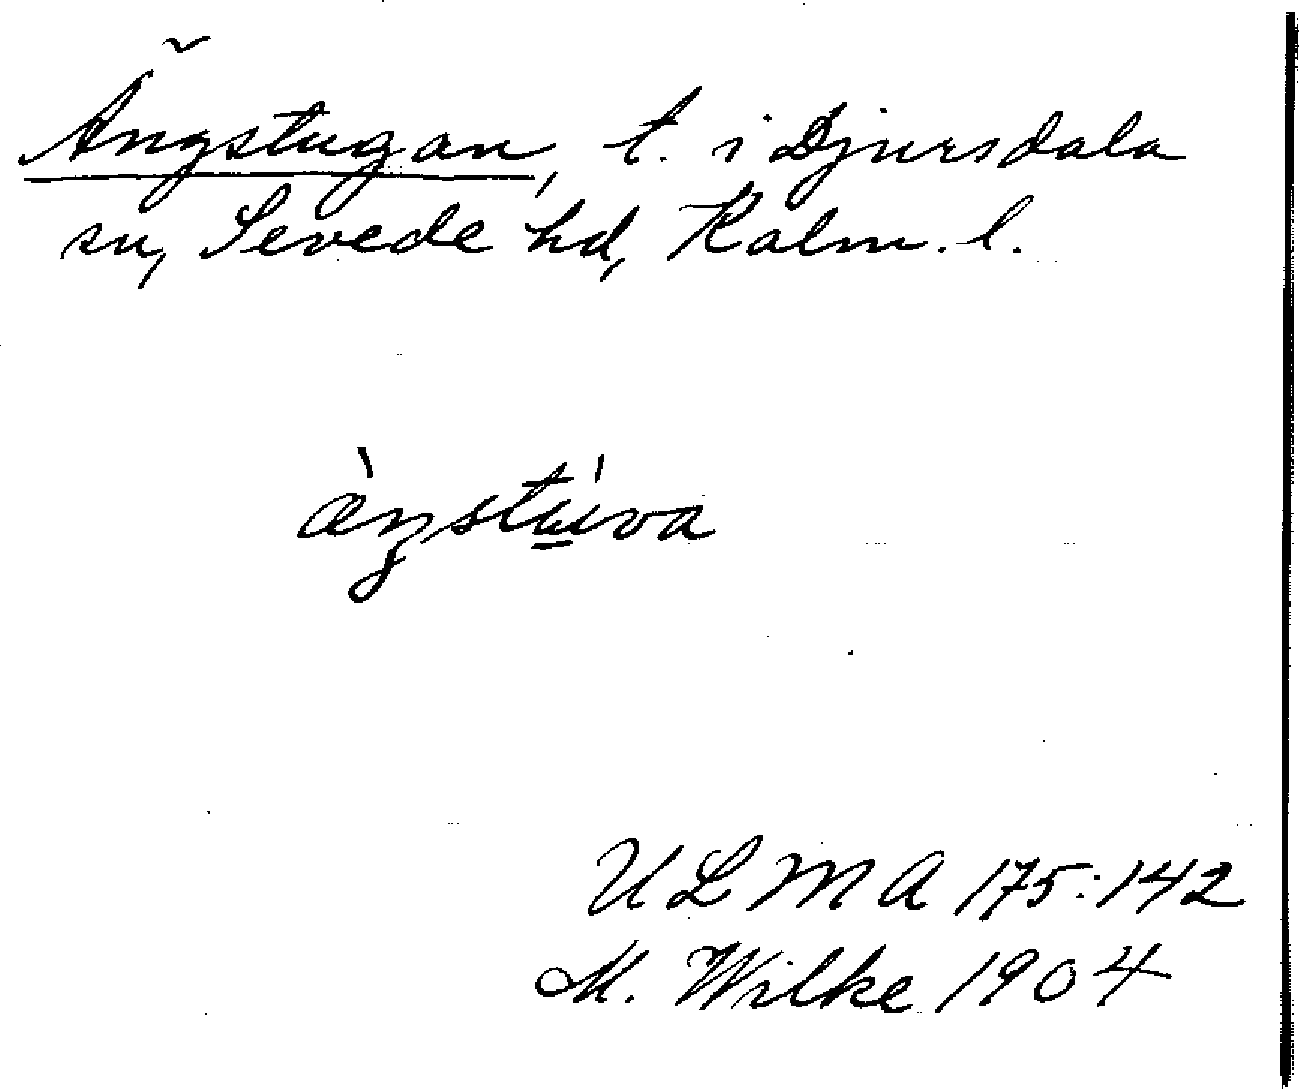 Ängstugan, t. i Djursdala
sn, Sevede hd, Kalm. l.
æ̀ŋstú̠va
ULMA 175:142
M. Wilke 1904